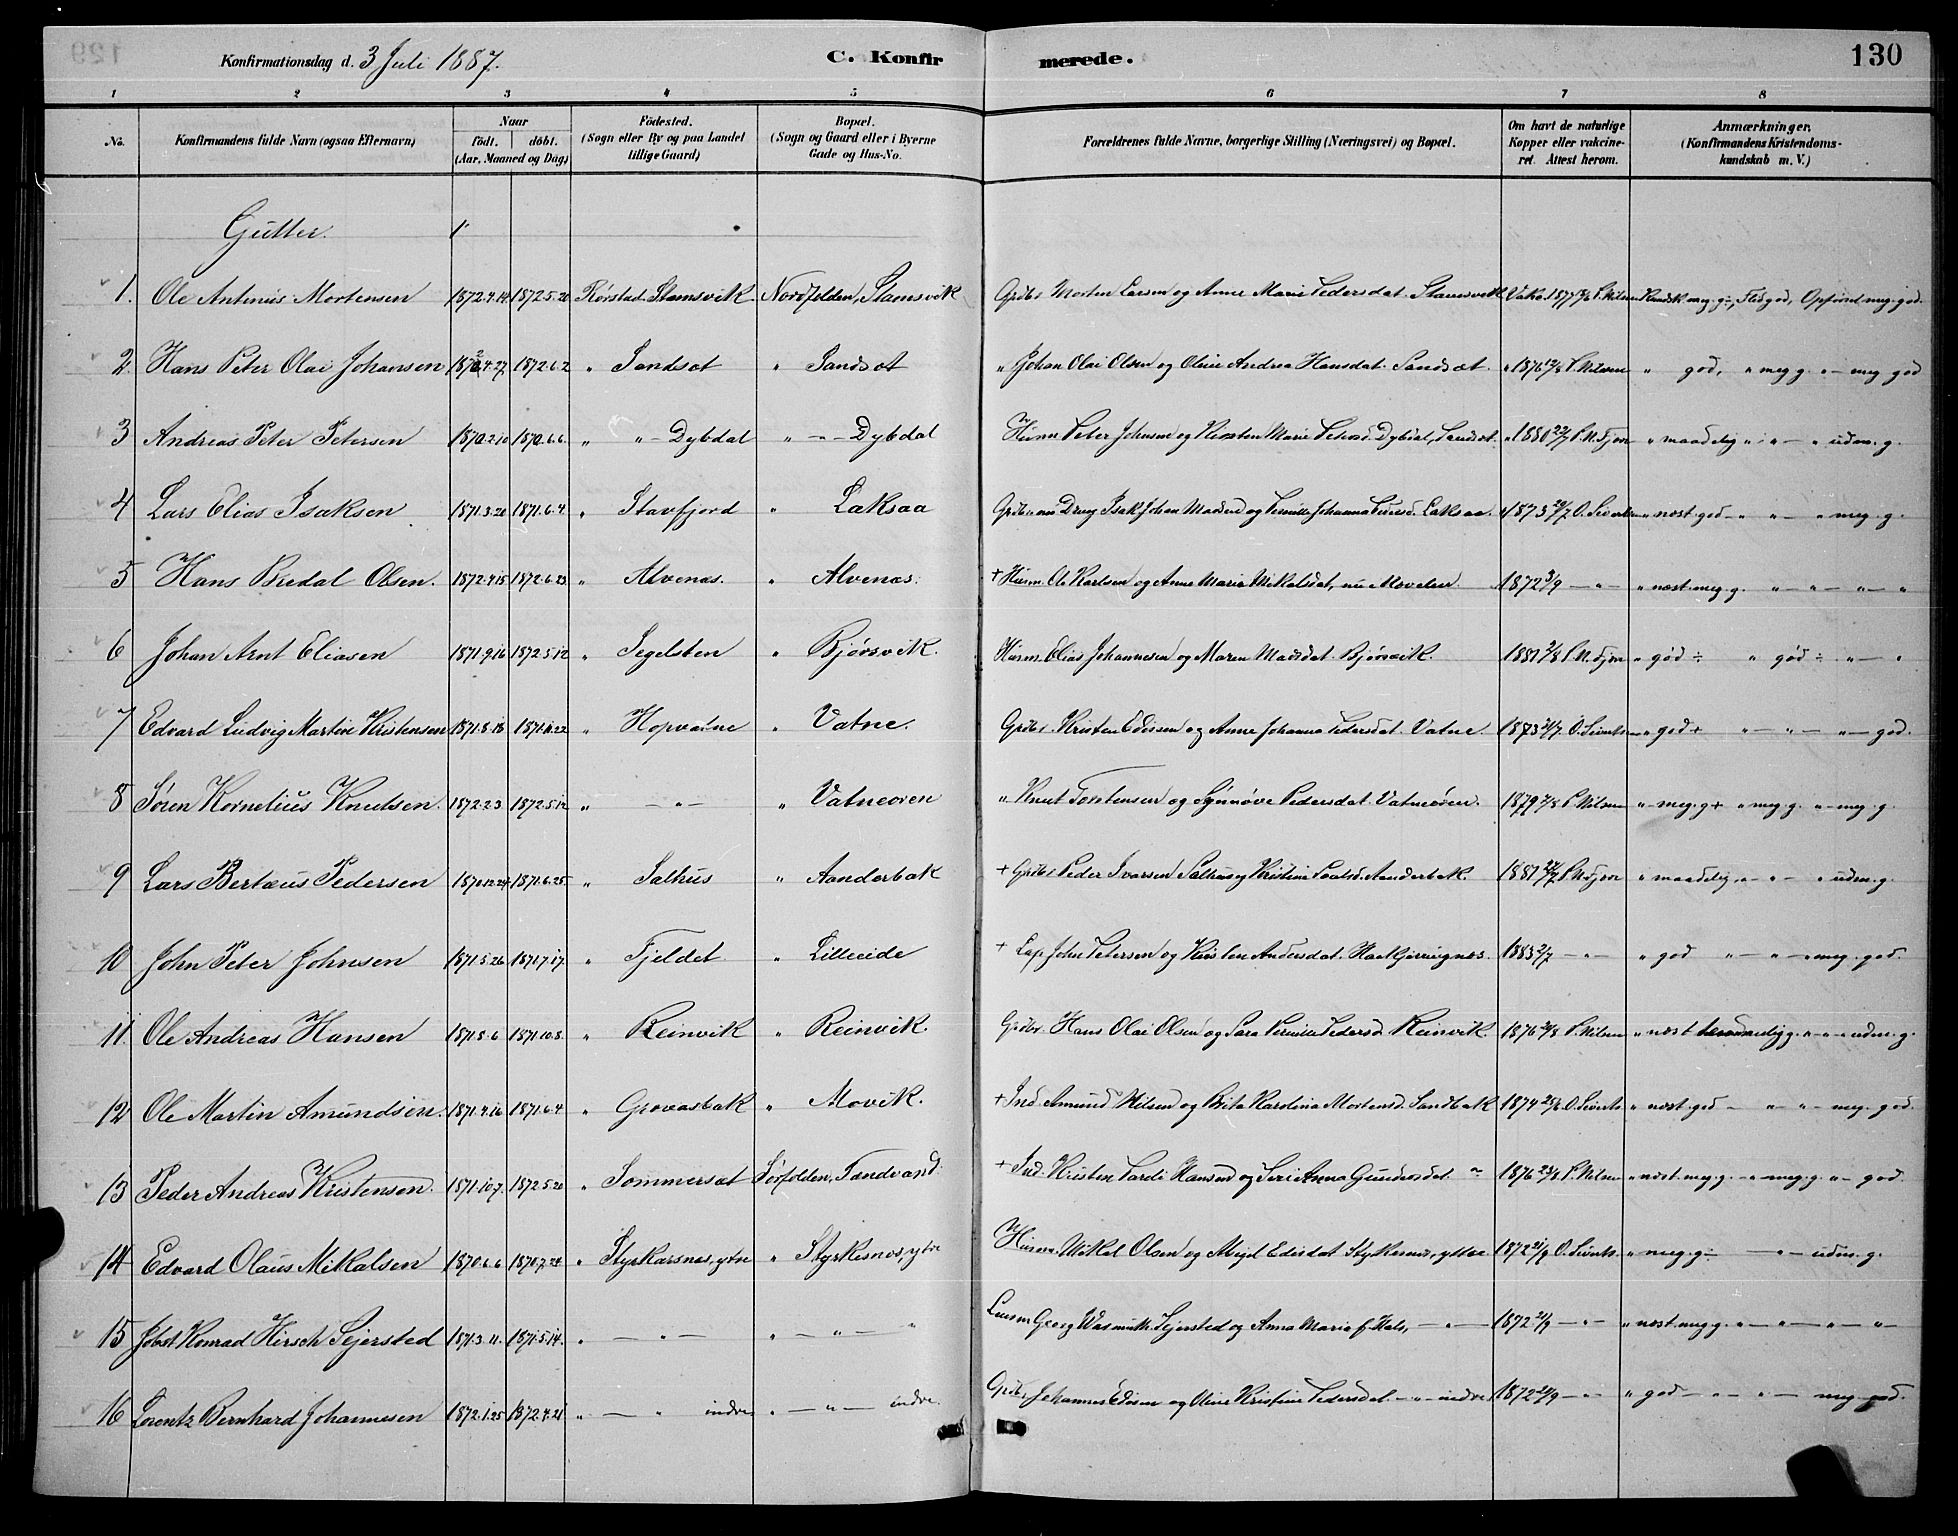 Konfirmationsdag d. 3 Juli 1887. C. Konfir merede. 130
1 2 3 4 5 6 7 8
No. Konfirmandens fulde Navn (ogsaa Efternavn) Naar födt. döbt. (Aar, Maaned og Dag) Födested. (Sogn eller By og paa Landet tillige Gaard) Bopæl. (Sogn og Gaard eller i Byerne Gade og Hus-No. Forældrenes fulde Navne, borgerlige Stilling (Næringsvei) og Bopæl. Om havt de naturlige Kopper eller vakcineret. Attest herom. Anmærkninger. (Konfirmandens Kristendomskundskab m. V.)
Gutter.
1. Ole Antinius Mortensen 1872.4.14. 1872.5.20 Rørstad. Stamsvik. Nordfolden, Stamsvik Grdbr Morten Larsen og Anne Marie Pedersdat. Stamsvik Vakc. 1877 P. Nilsen Kundsk. meg. g÷, Flid god, Opførsel meg. god.
2. Hans Peter Olai Johansen 1872.4.27. 1872.6.2 " Sandsæt " Sandsæt " Johan Olai Olsen og Oline Andrea Hansdat. Sandsæt. " 1876 P. Nilsen " god, " meg g. " — meg god
3 Andreas Peter Petersen 1870.2.10 1870.6.6. " " — Dybdal " — " — Dybdal Husm Peter Johnsen og Kirsten Marie Dybdal, Sandsæt. " 1880 P. N. Fjære " maadelig " " — " udm. g.
4 Lars Elias Isaksen 1871.3.20 1871.6.4. " Stavfjord " Laksaa Johan og Pernille Johanna Laksaa. 1873 O. Sivertsen " næst. god — " " — " meg. g.
5 Hans Bredal Olsen. 1872.4.15 1872.6.23 " Alvenæs. " Alvenæs. + Husm. Ole Karlsen og Anne Marie Mikalsdat, 1872 3/9 — " — " næst. meg. g. " — " — " — "
6 Johan Arnt Eliasen 1871.9.16 1872.5.12 " Segelsten " Bjørsvik. Husm. Elias Johannesen og Maren Madsdat. Bjørsvik. 1881 P. N. Fjære " god ÷ " god ÷ " — "
7 Edvard Ludvig Martin Kristensen 1871.8.18 1871.11.22 " Hopvatne " Vatne. Grdbr. Kristen Edissen og Anne Johanna Pedersdat. Vatne 1873 O. Siverts. " god + " — " — " — god.
8 Søren Kornelius Knudsen. 1872.2.3 1872.5.12 " — " — " Vatneøren " Knut Torstensen og Synnøve Pedersdat. Vatneøren. 1879 P. Nilsen " meg. g + " meg. g. " — meg. g.
9 Lars Bertæus Pedersen 1870.12.24 1871.6.25 " Salhus " Aanderbak + Grdbr Peder Ivarsen Salhus og Kristine Aanderbak. 1881 P. N. Fjære " maadelig, " — " — " udm. g.
10 John Peter Johnsen 1871.5.26 1871.7.17. " Fjeldet " Lilleeide + Lap. John Petersen og Kirsten Andersdat. 1883 2/7 — " — " god " — " — " meg. god.
11. Ole Andreas Hansen 1871.8.6 1871.10.8. " Reinvik " Reinvik. Grdbr. Hans Olai Olsen og Sara Reinvik. 1876 P. Nilsen " næst g. " — " — " udm. g.
12 Ole Martin Amundsen. 1871.4.16 1871.6.4 " Grovasbak " Movik. + Ind. Amund Nilsen og Brita Karolina Mortensd. Sandbak 1874 O. Siverts. " næst. god — " — " — meg. god.
13 Peder Andreas Kristensen. 1871.10.7. 1872.5.20 " Sommersæt Sørfolden, Tandvand. + Ind. Kristen Hansen og Anna Gundersdat. " 1876 P. Nilsen " næst. meg. g. — " meg. g. " — god.
14 Edvard Olaus Mikalsen 1870.6.6 1870.7.24 " Styrkarsnæs, ytre " Styrkesnes, ytre Husm. Mikal Olsen og Edisdat Styrkesnæs, yttre 1872 O. Siverts. " meg. g ÷ " — udm. g.
15 Jobst Konrad Hirsch Sejersted 1871.3.11. 1871.5.14. " — " — " — " — " Georg Wasmuth Sejersted og Anna Marie f. Hals, — " — 1872 — " — " næst. meg g. " — " — " — " —
16 Lorentz Bernhard Johannesen 1872.1.25 1872.4.21 " — " indre " — " — indre. Grdbr. Johannes Edissen og Oline Kristine Pedersdat. — " — indre, 1872 — " — " god — " — " — meg. god.